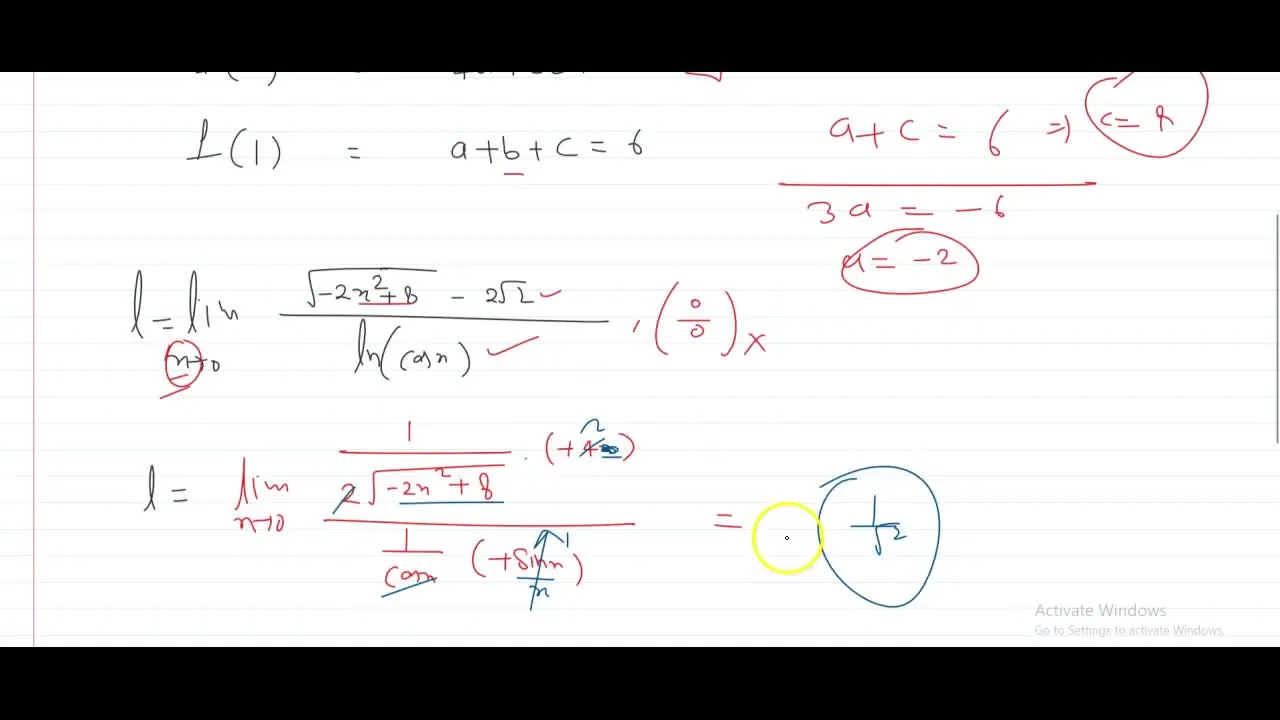 L(1) = a+b+c = 6
a + c = 6 ⇒ c = 8
3a = -6
a = -2
l = lim n→0 (√(-2n²+8) - 2√2) / (ln(cos n)) , (0/0) x
l = lim n→0 (1 / (2√(-2n²+8)) . (+4n) 2) / (1/cos n (+sin n / n) 1) = 1/√2
Activate Windows
Go to Settings to activate Windows.